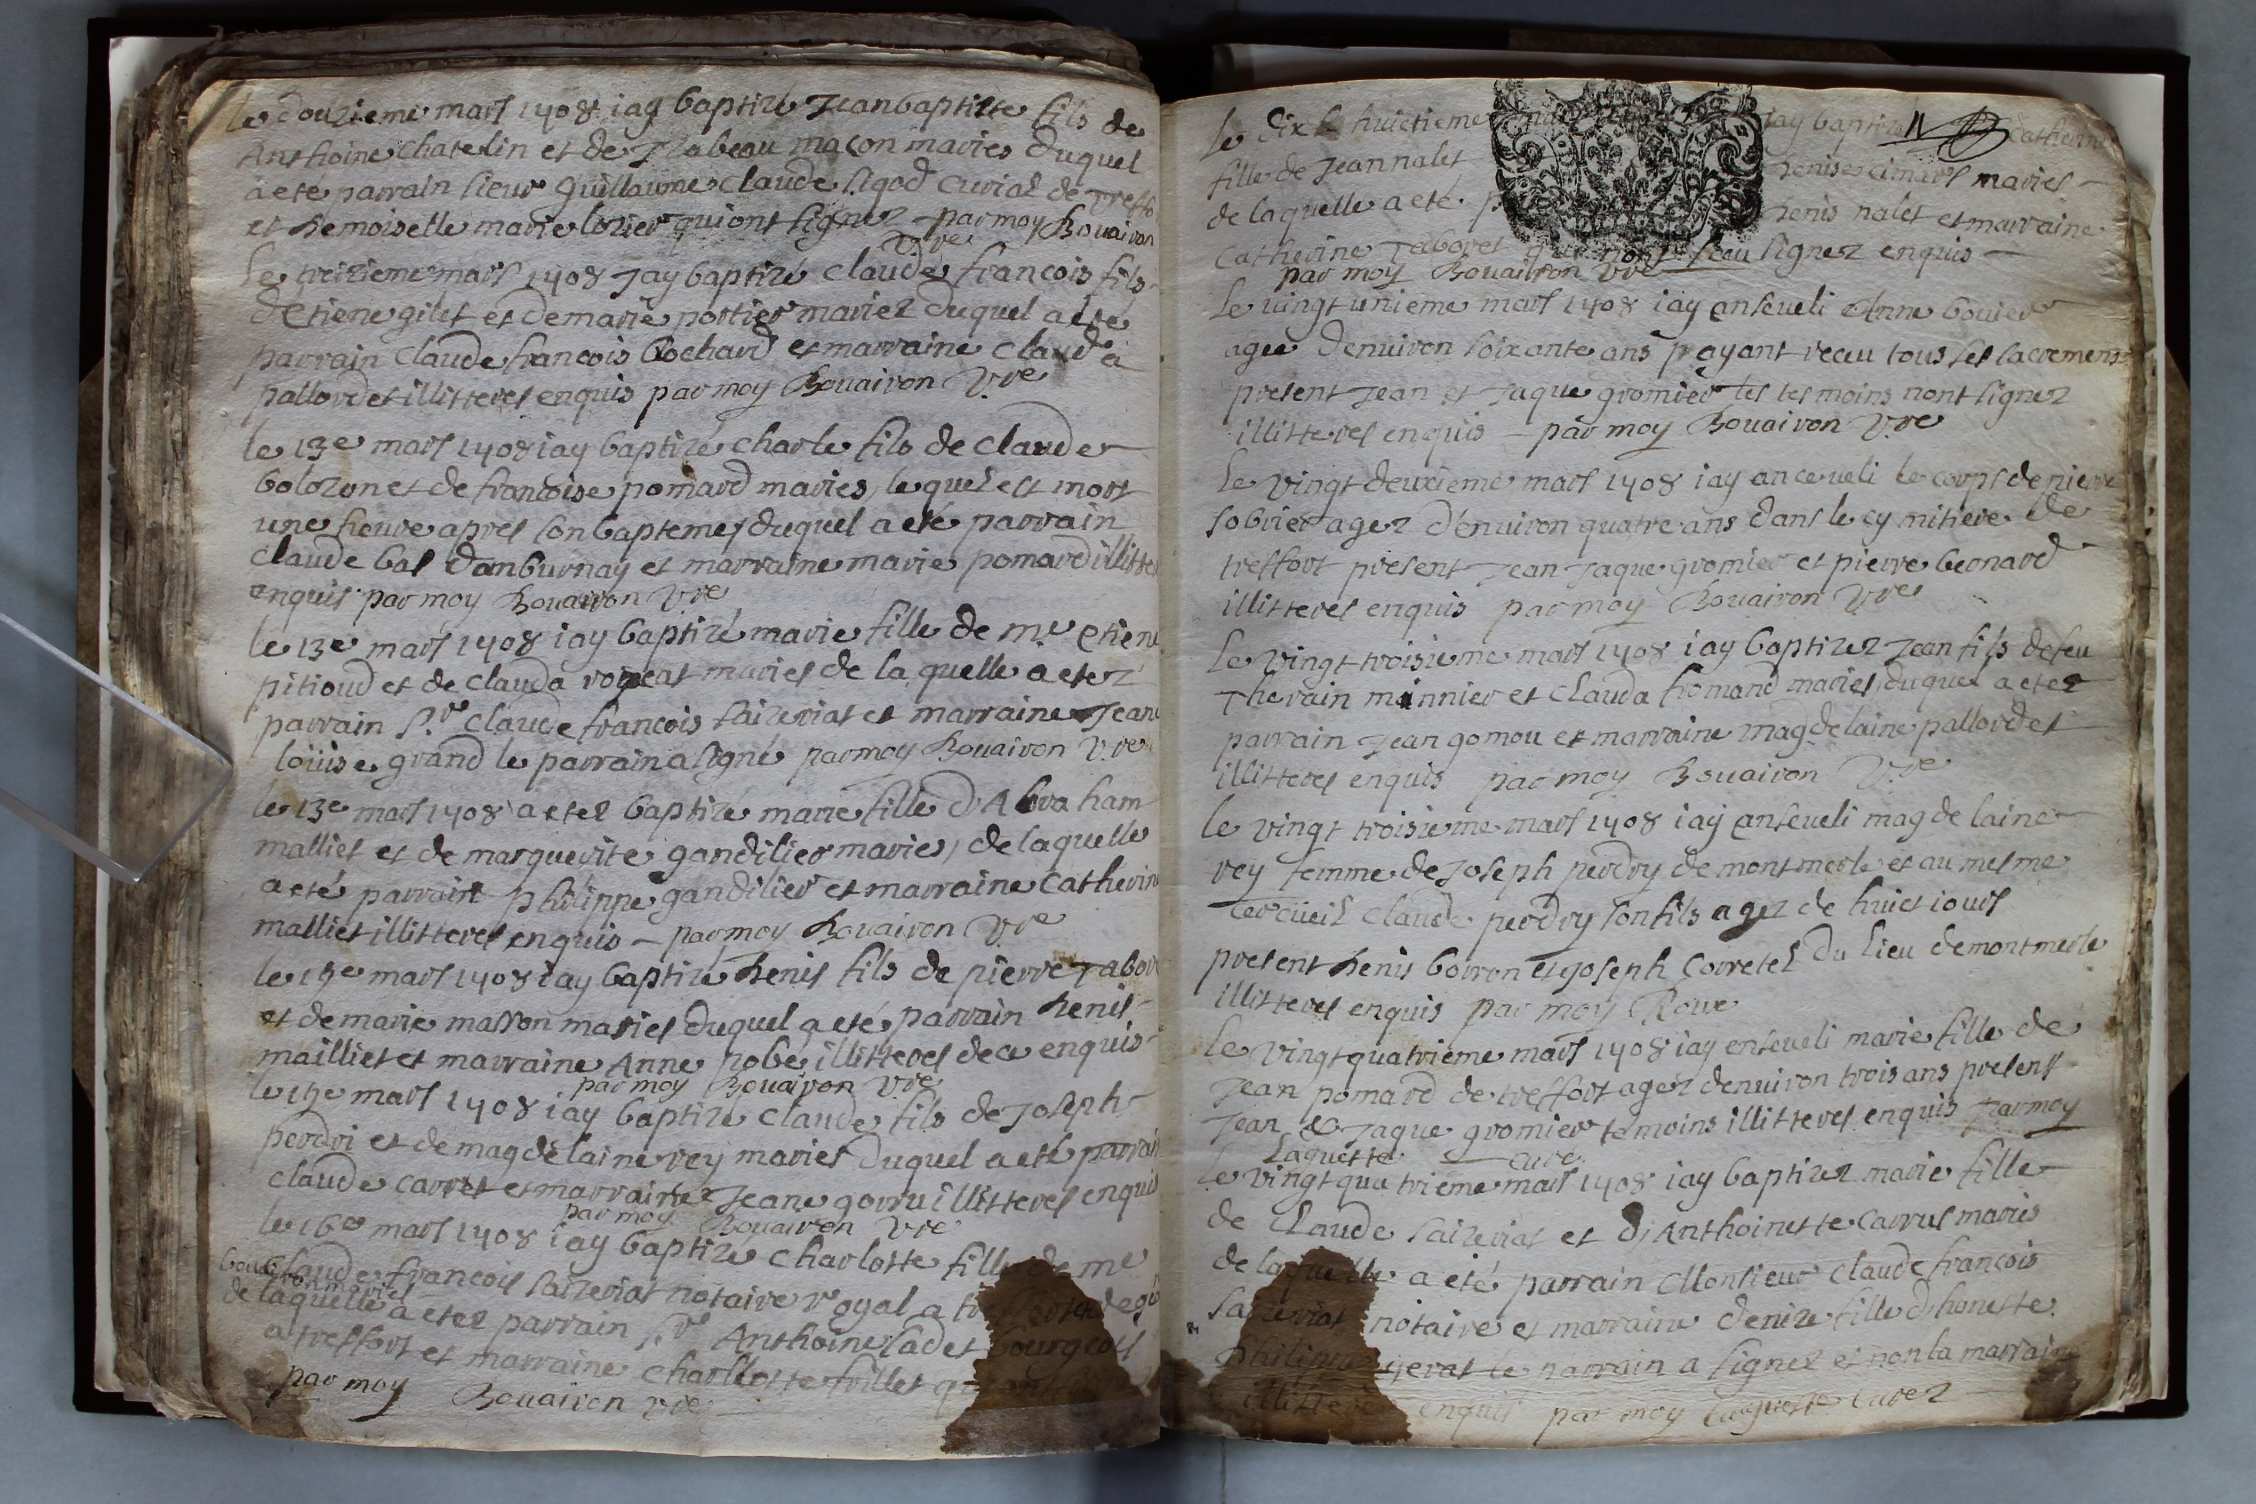 le douzieme mars 1708 iay baptizé Jeanbaptiste fils de
Anthoine chatelin et de Izabeau maçon maries duquel
a eté parrain sieur Guillaume claude sigod curial de treffo
et demoiselle marie lorier qui ont signez par moy Bouairon
Vre
Le treizieme mars 1708 Jay baptizé claude francois fils
detiene gilet et de marie portier mariez duquel a eté
parrain claude francois Bochard et marraine clauda
pallordet illitteres enquis par moy Bouairon Vre
le 13e mars 1708 iay baptizé charle fils de claude
bolozon et de francoise pomard maries, le quel est mort
une heure apres son bapteme, duquel a eté parrain
claude bal danburnay et marraine marie pomard illitte
enquis par moy Bouairon Vre
le 13e mars 1708 iay baptizé marie fille de me etiene
pitioud et de clauda maries de la quelle a etez
parrain sr claude francois saizeriat et marraine Jeane
loüise grand le parrain a signé par moy Bouairon Vre
le 13e mars 1708 a etez baptizé marie fille d'Abraham
malliet et de marguerite gandilier maries, de laquelle
a eté parrain philippe gandilier et marraine catherin
malliet illitteres enquis par moy Bouairon Vre
le 15e mars 1708 iay baptizé denis fils de pierre Tabor
et de marie masson maries duquel a eté parrain denis
mailliet et marraine Anne robe illitteres de ce enquis
par moy Bouairon Vre
le 15e mars 1708 iay baptizé claude fils de Joseph
perdri et de magdelaine rey maries duquel a eté parrain
claude carret et marraine Jeane gorru illitteres enquis
par moy Bouairon Vre
le 16e mars 1708 iay baptizé charlotte fille de me
claude francois saizeriat notaire royal a
de laquelle a etez parrain sr Anthoine sadet bourgeois
a treffort et marraine charllotte frillet
par moy Bouairon Vre
Le dix huictieme iay baptizé catherine
fille de Jean nalet denise maries
de laquelle a eté denis nalet et marraine
catherine Taboret signez enquis
par moy Bouairon Vre
Le vingt unieme mars 1708 iay enseveli Anne bouier
agée denuiron soixante ans ayant receu tous ses sacremens
present Jean et Jaque gromier les tesmoins nont signez
illitteres enquis par moy Bouairon Vre
Le vingt deuxieme mars 1708 iay anceveli le corps de pierre
sobrier agez d'enuiron quatre ans dans le cymitiere de
treffort present Jean Jaque gromier et pierre bernard
illitteres enquis par moy Bouairon Vre
Le vingt troisieme mars 1708 iay baptizez Jean fils defeu
Therain minnier et clauda fromand maries duquel a etez
parrain Jean gomou et marraine magdelaine pallordet
illitteres enquis par moy Bouairon Vre
le vingt troisieme mars 1708 iay enseveli magdelaine
rey femme de Joseph perdry de montmerle et au mesme
cercüeil claude perdry son fils agez de huict iours
present denis boiron et goseph Corretel du lieu de montmerle
illitteres enquis par moy Boue
Le vingt quatrieme mars 1708 iay enseveli marie fille de
Jean pomard de treffort agez denuiron trois ans present
Jean & Jaque gromier témoins illitteres enquis par moy
Laguette curé
Le vingt quatrieme mars 1708 iay baptizez marie fille
de claude saizeriat et d'Anthoinette carrus maries
de laquelle a eté parrain Monsieur claude françois
saizeriat notaire et marraine denize fille d'honeste
philippe le parrain a signez et non la marraine
illittere enquis par moy Laguette curez